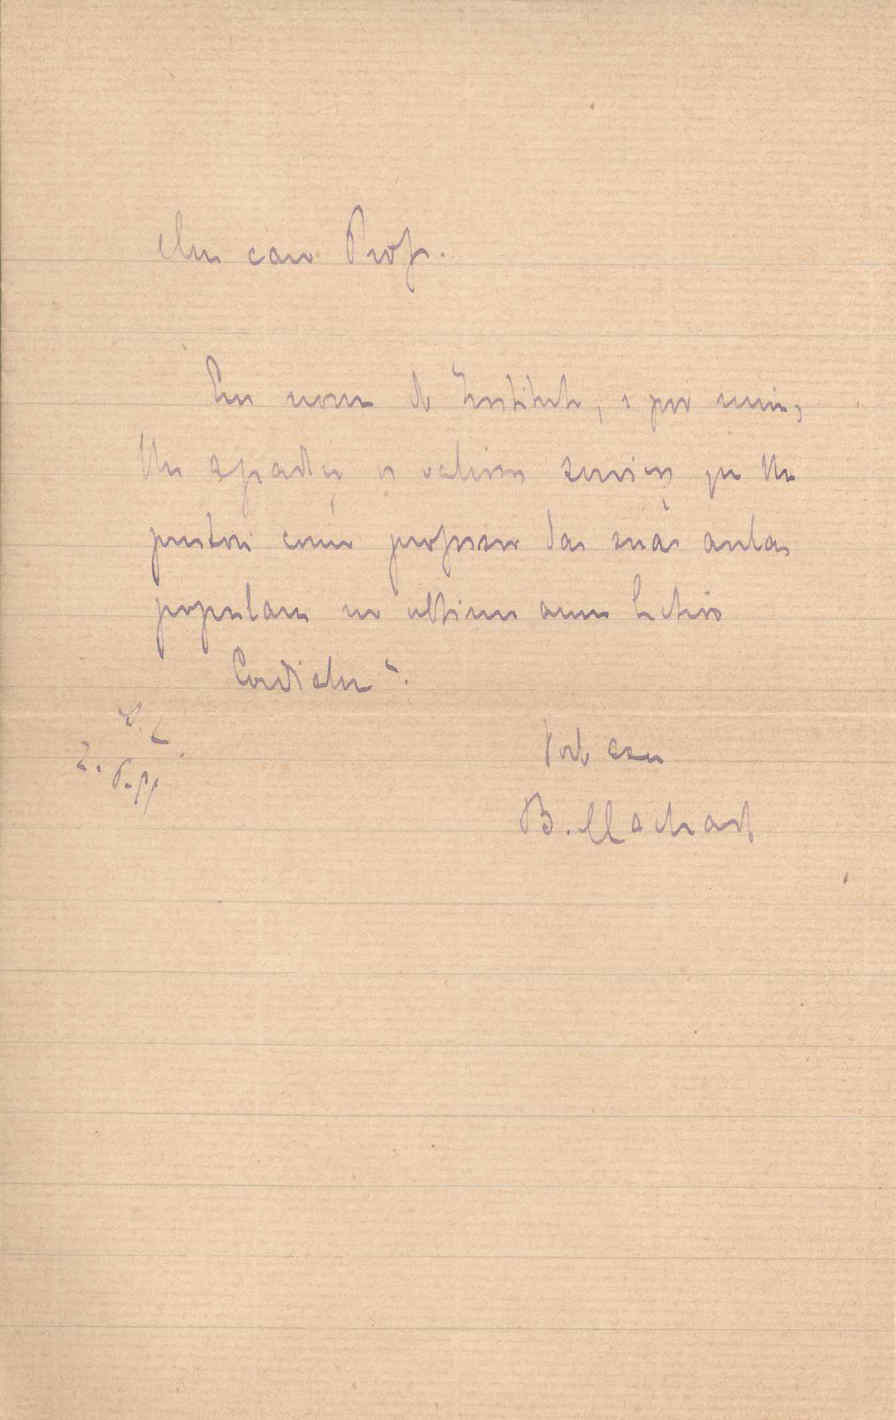 Meu caro Prof.
Em nome do Instituto, e por mim,
lhe agradeço os valiosos serviços que lhe
prestou como professor das suas aulas
populares no ultimo anno lectivo
Cordialm.te
B. Machado